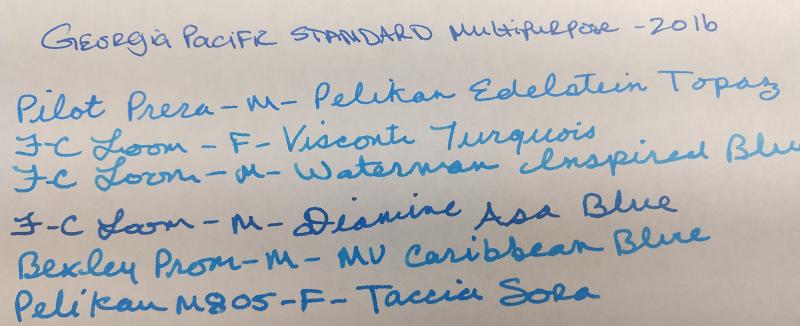 Georgia Pacific STANDARD Multipurpose - 20lb
Pilot Prera - M - Pelikan Edelstein Topaz
F-C Loom - F - Visconti Turquois
F-C Loom - M - Waterman Inspired Blue
F-C Loom - M - Diamine Asa Blue
Bexley Prom - M - MV Caribbean Blue
Pelikan M805 - F - Taccia Sora